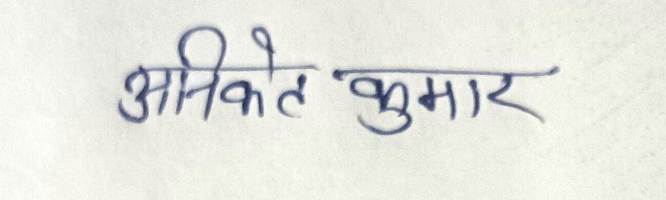 अनिकेत कुमार